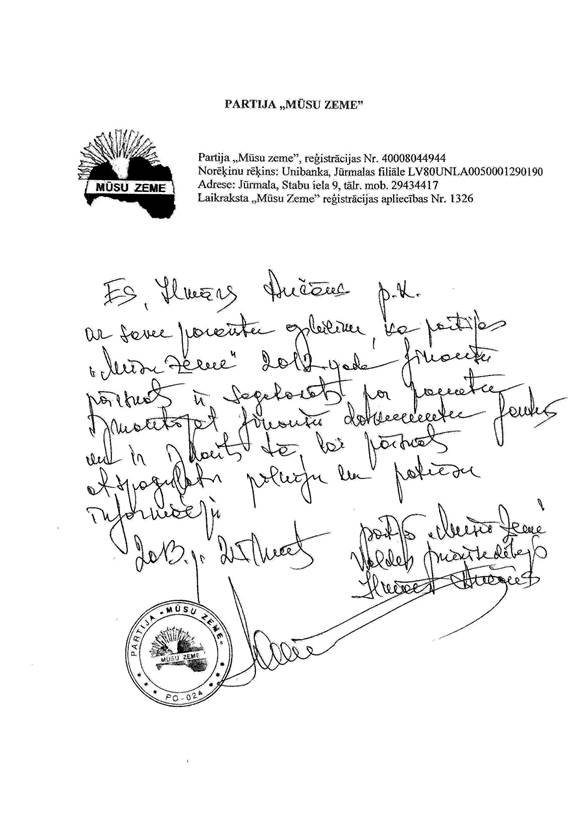 PARTIJA „MŪSU ZEME”
MŪSU ZEME
Partija „Mūsu zeme”, reģistrācijas Nr. 40008044944
Norēķinu rēķins: Unibanka, Jūrmalas filiāle LV80UNLA0050001290190
Adrese: Jūrmala, Stabu iela 9, tālr. mob. 29434417
Laikraksta „Mūsu Zeme” reģistrācijas apliecības Nr. 1326
Es, Ilmārs Ančāns p.k.
ar savu parakstu apliecinu, ka partijas
„Mūsu Zeme” 2012. gada finanšu
pārskats ir sagatavots par pamatu
izmantojot finanšu dokumentu
un ir tā, lai pārskats
atspoguļotu pilnīgu un patiesu
informāciju
2013.g. 25. martā
partijas „Mūsu Zeme”
Valdes priekšsēdētājs
Ilmārs Ančāns
PARTIJA "MŪSU ZEME"
MŪSU ZEME
PO-024